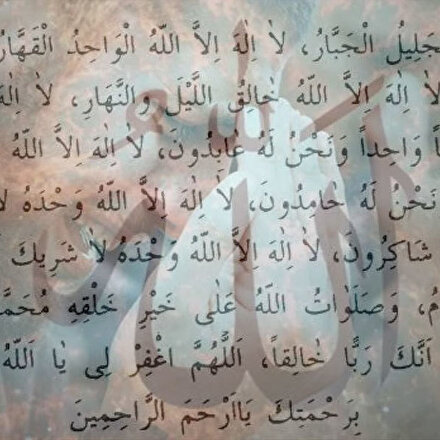 جَلِيلُ الْجَبَّارُ، لاٰ اِلٰهَ اِلاَّ اللّٰهُ الْوَاحِدُ الْقَهَّارُ
لاٰ اِلٰهَ اِلاَّ اللّٰهُ خٰالِقُ اللَّيْلَ وَالنَّهٰارِ، لاٰ اِلٰهَ
وَاحِداً وَنَحْنُ لَهُ عٰابِدُونَ، لاٰ اِلٰهَ اِلاَّ اللّٰهُ
نَحْنُ لَهُ حٰامِدُونَ، لاٰ اِلٰهَ اِلاَّ اللّٰهُ وَحْدَهُ لاٰ
شٰاكِرُونَ، لاٰ اِلٰهَ اِلاَّ اللّٰهُ وَحْدَهُ لاٰ شَرِيكَ
وَصَلَوٰاتُ اللّٰهُ عَلٰى خَيْرِ خَلْقِهِ مُحَمَّ
اَنَّكَ رَبًّا خٰالِقاً، اَللّٰهُمَّ اغْفِرْ لِى يٰا اَللّٰهُ
بِرَحْمَتِكَ يٰااَرْحَمَ الرَّاحِمِينَ